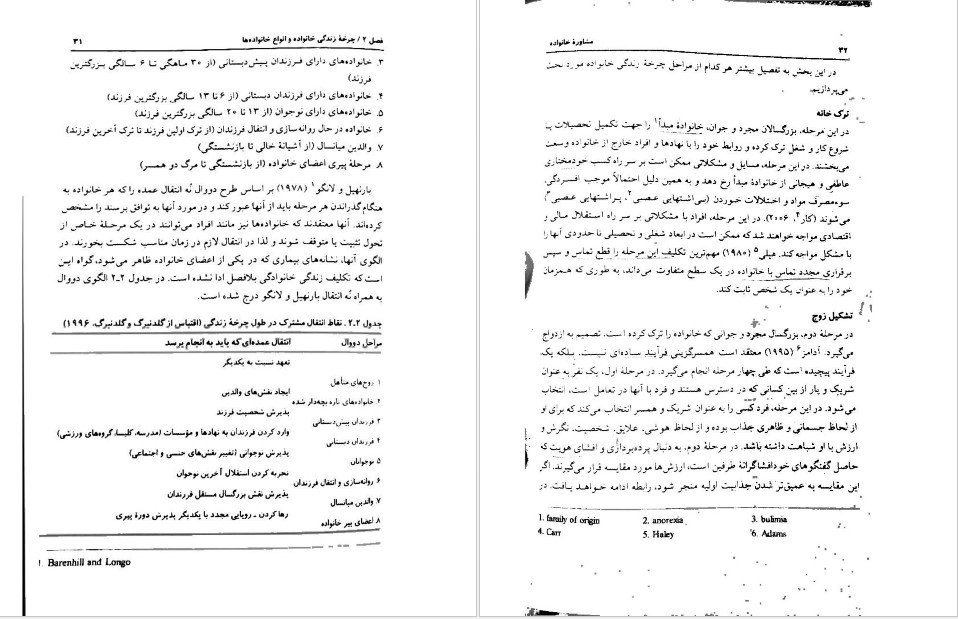 فصل ۲ / چرخهٔ زندگی خانواده و انواع خانواده‌ها ۳۱
۳. خانواده‌های دارای فرزندان پیش‌دبستانی (از ۳۰ ماهگی تا ۶ سالگی بزرگترین
فرزند)
۴. خانواده‌های دارای فرزندان دبستانی (از ۶ تا ۱۳ سالگی بزرگترین فرزند)
۵. خانواده‌های دارای نوجوان (از ۱۳ تا ۲۰ سالگی بزرگترین فرزند)
۶. خانواده در حال روانه‌سازی و انتقال فرزندان (از ترک اولین فرزند تا ترک آخرین فرزند)
۷. والدین میانسال (از آشیانهٔ خالی تا بازنشستگی)
۸. مرحلهٔ پیری اعضای خانواده (از بازنشستگی تا مرگ دو همسر)
بارنهیل و لانگو۱ (۱۹۷۸) بر اساس طرح دووال نُه انتقال عمده را که هر خانواده به
هنگام گذراندن هر مرحله باید از آنها عبور کند و در مورد آنها به توافق برسند را مشخص
کرده‌اند. آنها معتقدند که خانواده‌ها نیز مانند افراد می‌توانند در یک مرحلهٔ خاص از
تحول تثبیت یا متوقف شوند و لذا در انتقال لازم در زمان مناسب شکست بخورند. در
الگوی آنها، نشانه‌های بیماری که در یکی از اعضای خانواده ظاهر می‌شود، گواه این
است که تکلیف زندگی خانوادگی بلافصل ادا نشده است. در جدول ۲ـ۲ الگوی دووال
به همراه نُه انتقال بارنهیل و لانگو درج شده است.
جدول ۲ـ۲. نقاط انتقال مشترک در طول چرخهٔ زندگی (اقتباس از گلدنبرگ و گلدنبرگ، ۱۹۹۶)
مراحل دووال انتقال عمده‌ای که باید به انجام برسد
تعهد نسبت به یکدیگر
۱ زوج‌های متأهل
ایجاد نقش‌های والدینی
۲ خانواده‌های تازه بچه‌دار شده
پذیرش شخصیت فرزند
۳ فرزندان پیش‌دبستانی
وارد کردن فرزندان به نهادها و مؤسسات (مدرسه، کلیسا، گروه‌های ورزشی)
۴ فرزندان دبستانی
پذیرش نوجوانی (تغییر نقش‌های جنسی و اجتماعی)
۵ نوجوانان
تجربه کردن استقلال آخرین نوجوان
۶ روانه‌سازی و انتقال فرزندان
پذیرش نقش بزرگسال مستقل فرزندان
۷ والدین میانسال
رها کردن ـ رویایی مجدد با یکدیگر پذیرش دورهٔ پیری
۸ اعضای پیر خانواده
1. Barenhill and Longo
۳۲ مشاورهٔ خانواده
در این بخش به تفصیل بیشتر هر کدام از مراحل چرخهٔ زندگی خانواده مورد بحث
می‌پردازیم.
ترک خانه
در این مرحله، بزرگسالان مجرد و جوان، خانوادهٔ مبدأ۱ را جهت تکمیل تحصیلات یا
شروع کار و شغل ترک کرده و روابط خود را با نهادها و افراد خارج از خانواده وسعت
می‌بخشند. در این مرحله، مسایل و مشکلاتی ممکن است بر سر راه کسب خودمختاری
عاطفی و هیجانی از خانوادهٔ مبدأ رخ دهد و به همین دلیل احتمالاً موجب افسردگی،
سوءمصرف مواد و اختلالات خوردن (بی‌اشتهایی عصبی۲، پراشتهایی عصبی۳)
می‌شوند (کار۴، ۲۰۰۶). در این مرحله، افراد با مشکلاتی بر سر راه استقلال مالی و
اقتصادی مواجه خواهند شد که ممکن است در ابعاد شغلی و تحصیلی تا حدودی آنها را
با مشکل مواجه کند. هیلی۵ (۱۹۸۰) مهم‌ترین تکلیف این مرحله را قطع تماس و سپس
برقراری مجدد تماس با خانواده در یک سطح متفاوت می‌داند، به طوری که همزمان
خود را به عنوان یک شخص ثابت کند.
تشکیل زوج
در مرحلهٔ دوم، بزرگسال مجرد و جوانی که خانواده را ترک کرده است، تصمیم به ازدواج
می‌گیرد. آدامز۶ (۱۹۹۵) معتقد است همسرگزینی فرآیند ساده‌ای نیست. بلکه یک
فرآیند پیچیده است که طی چهار مرحله انجام می‌گیرد. در مرحلهٔ اول، یک نفر به عنوان
شریک و یار از بین کسانی که در دسترس هستند و فرد با آنها در تعامل است، انتخاب
می‌شود. در این مرحله، فرد کسی را به عنوان شریک و همسر انتخاب می‌کند که برای او
از لحاظ جسمانی و ظاهری جذاب بوده و از لحاظ هوشی، علایق، شخصیت، نگرش و
ارزش با او شباهت داشته باشد. در مرحلهٔ دوم، به دنبال پرده‌برداری و افشای هویت که
حاصل گفتگوهای خودافشاگرانهٔ طرفین است، ارزش‌ها مورد مقایسه قرار می‌گیرند. اگر
این مقایسه به عمیق‌تر شدن جذابیت اولیه منجر شود، رابطه ادامه خواهد یافت. در
1. family of origin 2. anorexia 3. bulimia
4. Carr 5. Haley 6. Adams